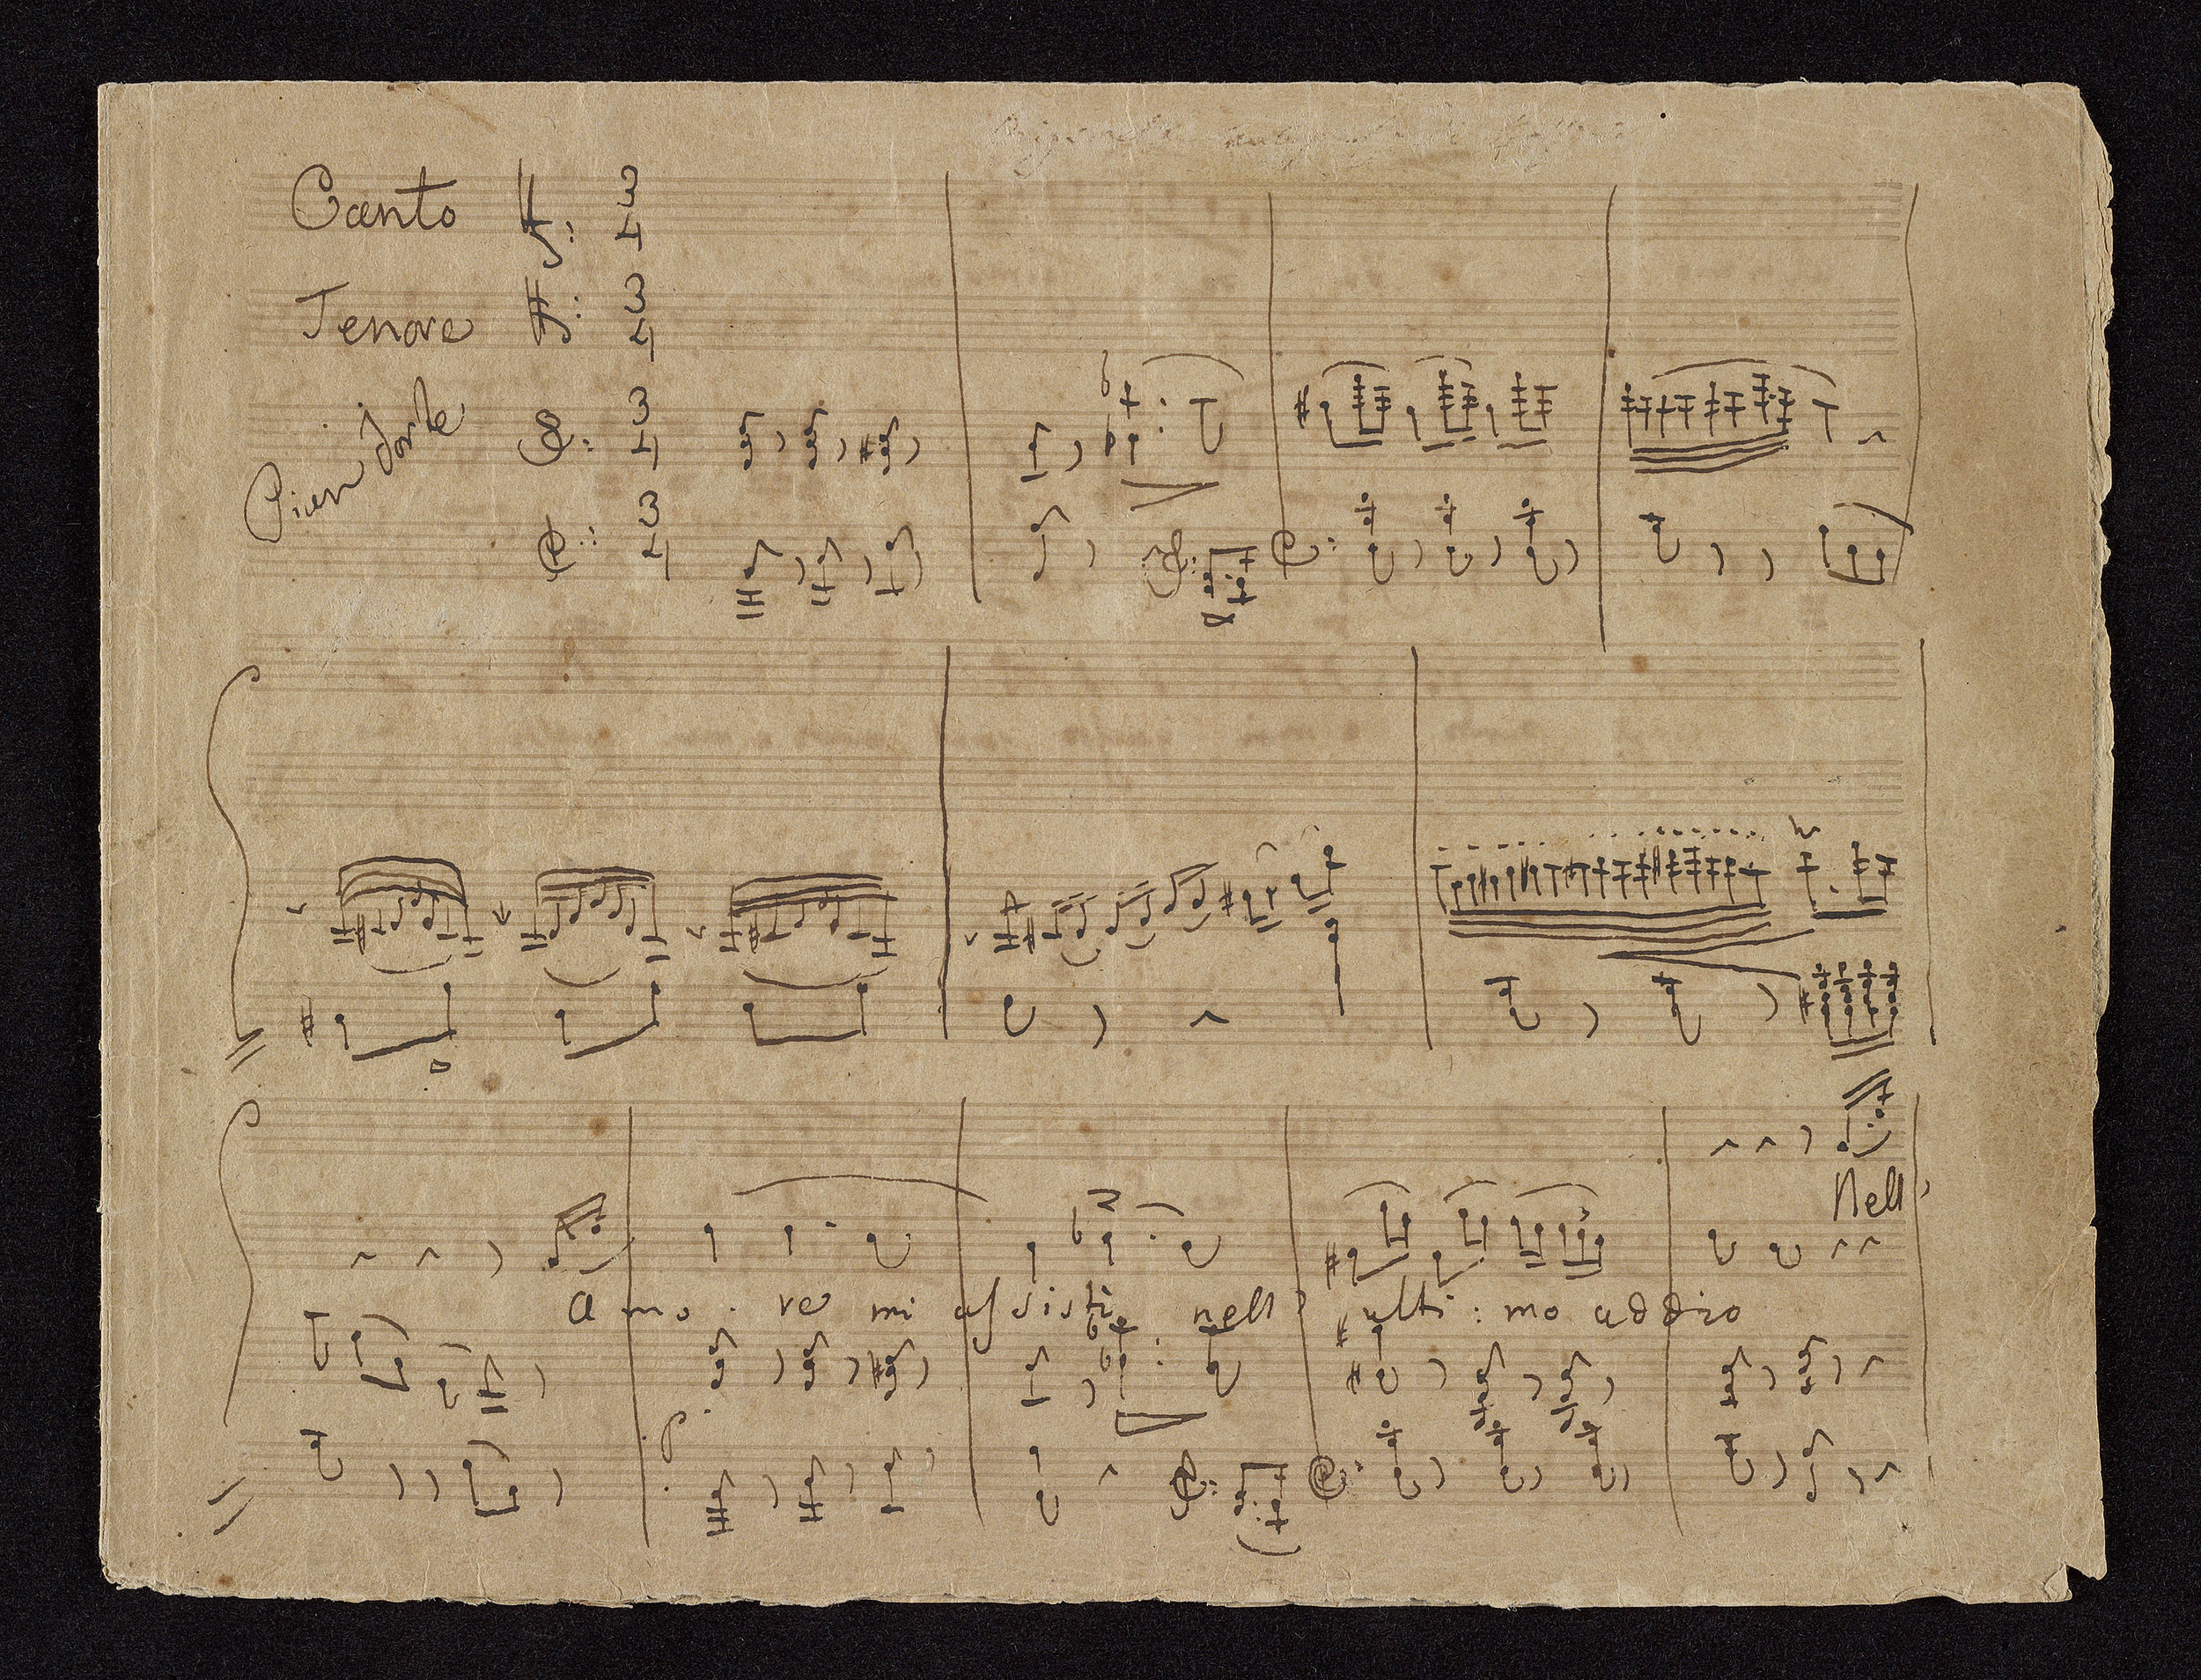 Canto 3 4
Tenore 3 4
Pian Forte 3 4
3 4
Nell'
A mo . re mi assisti nell' ulti : mo addio
p.